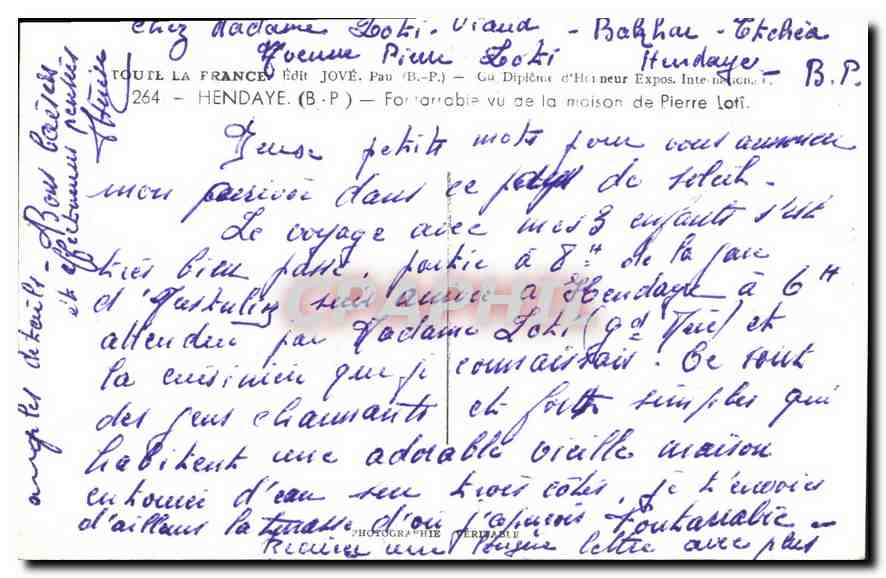 Chez Madame Loti-Viaud - Bakhar-Etchéa
Avenue Pierre Loti Hendaye - B.P.
TOUTE LA FRANCE. Édit JOVÉ, Pau (B.-P.) - Gd Diplôme d'Honneur Expos. Internation.
264 - HENDAYE. (B.-P) - Fontarrabie vu de la maison de Pierre Loti.
petits mots pour vous annoncer
mon arrivée dans ce pays de soleil.
Le voyage avec mes 3 enfants s'est
très bien passé, partie à 8H de la gare
d'Austerlitz suis arrivée à Hendaye à 6H
attendue par Madame Loti (gd Mère) et
la cuisinière que je connaissais. Ce sont
des gens charmants et fort simples qui
habitent une adorable vieille maison
entourée d'eau sur trois côtés, je t'envoie
d'ailleurs la terrasse d'où j'aperçois Fontarrabie
PHOTOGRAPHIE VÉRITABLE
une longue lettre avec plus
amples détails - Bons baisers
et affectueuses pensées